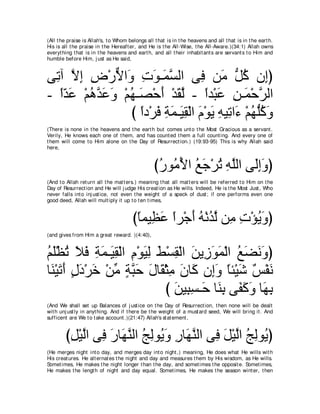 (All the praise is Allah's, to Whom belongs all that is in the heavens and all that is in the earth. His is all the praise in the Hereafter, and He is the All-Wise, the All-Aware.)(34:1) Allah owns everything that is in the heavens and earth, and all their inhabitants are servants to Him and humble before Him, just as He said,
(إِن كُلُّ مَن فِى السَّمَـوَتِ وَالاٌّرْضِ إِلاَّ آتِى
الرَّحْمَـنِ عَبْداً - لَّقَدْ أَحْصَـهُمْ وَعَدَّهُمْ عَدّاً -
وَكُلُّهُمْ ءَاتِيهِ يَوْمَ الْقِيَـمَةِ فَرْداً )
(There is none in the heavens and the earth but comes unto the Most Gracious as a servant. Verily, He knows each one of them, and has counted them a full counting. And every one of them will come to Him alone on the Day of Resurrection.) (19:93-95) This is why Allah said here,
(وَإِلَى اللَّهِ تُرْجَعُ الاٍّمُورُ)
(And to Allah return all the matters.) meaning that all matters will be referred to Him on the Day of Resurrection and He will judge His creation as He wills. Indeed, He is the Most Just, Who never falls into injustice, not even the weight of a speck of dust; if one performs even one good deed, Allah will multiply it up to ten times,
(وَيُؤْتِ مِن لَّدُنْهُ أَجْراً عَظِيماً)
(and gives from Him a great reward.)(4:40),
(وَنَضَعُ الْمَوَزِينَ الْقِسْطَ لِيَوْمِ الْقِيَـمَةِ فَلاَ تُظْلَمُ
نَفْسٌ شَيْئاً وَإِن كَانَ مِثْقَالَ حَبَّةٍ مِّنْ خَرْدَلٍ أَتَيْنَا
بِهَا وَكَفَى بِنَا حَـسِبِينَ )
(And We shall set up Balances of justice on the Day of Resurrection, then none will be dealt with unjustly in anything. And if there be the weight of a mustard seed, We will bring it. And sufficient are We to take account.)(21:47) Allah's statement,
(يُولِجُ الَّيْلَ فِى النَّهَارِ وَيُولِجُ النَّهَارَ فِى الَّيْلِ)
(He merges night into day, and merges day into night,) meaning, He does what He wills with His creatures. He alternates the night and day and measures them by His wisdom, as He wills. Sometimes, He makes the night longer than the day, and sometimes the opposite. Sometimes, He makes the length of night and day equal. Sometimes, He makes the season winter, then